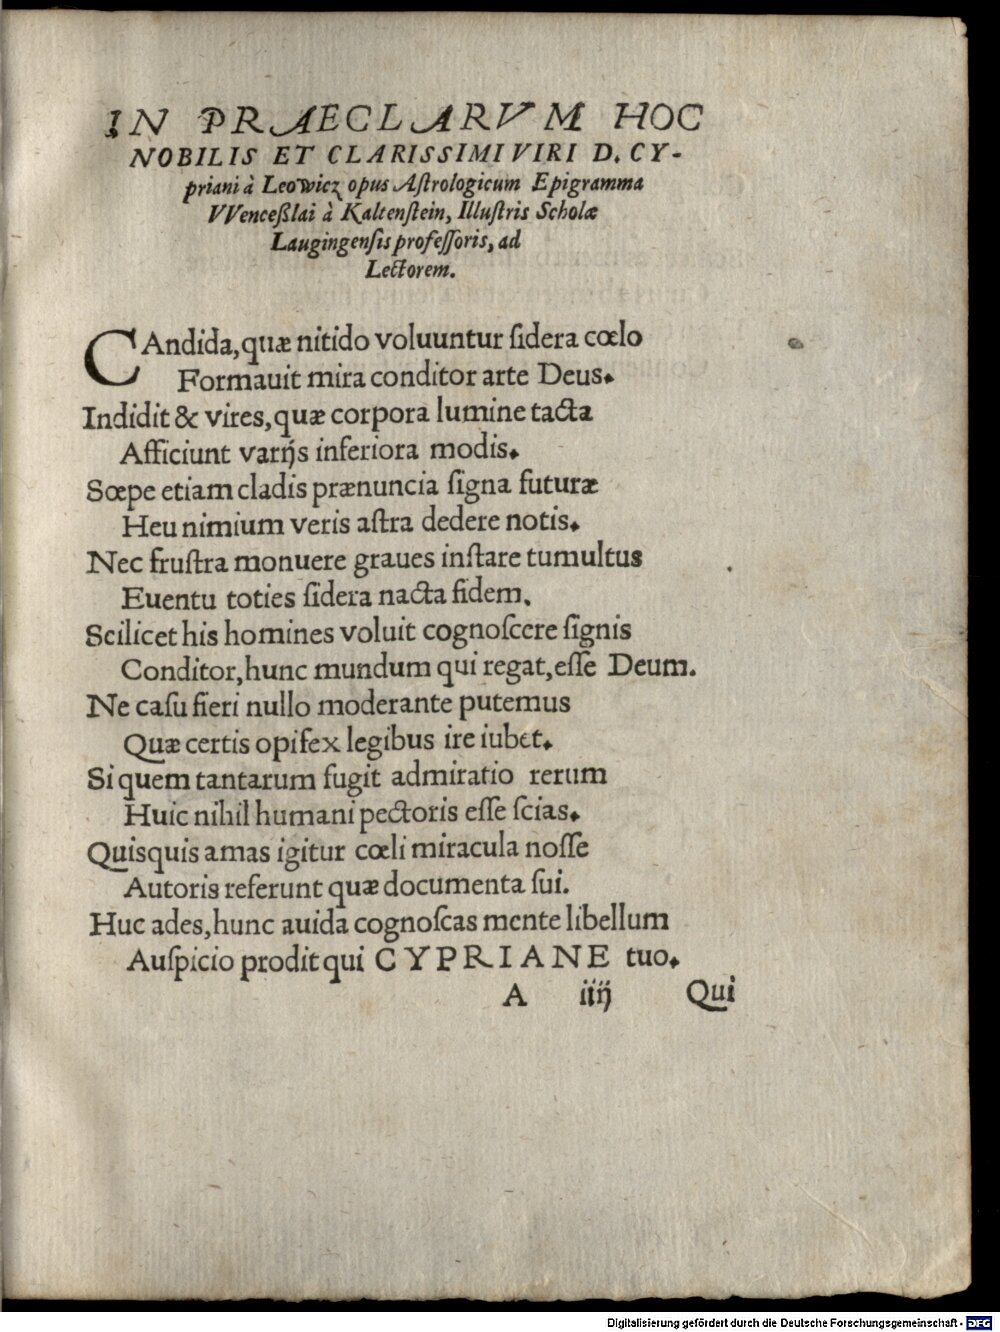 IN PRAECLARVM HOC
NOBILIS ET CLARISSIMI VIRI D. CY-
priani à Leowicz opus Aſtrologicum Epigramma
VVenceßlai à Kaltenſtein, Illuſtris Scholæ
Laugingenſis profeſſoris, ad
Lectorem.
CAndida, quæ nitido voluuntur ſidera cœlo
Formauit mira conditor arte Deus.
Indidit & vires, quæ corpora lumine tacta
Afficiunt varijs inferiora modis.
Sœpe etiam cladis prænuncia ſigna futuræ
Heu nimium veris aſtra dedere notis.
Nec fruſtra monuere graues inſtare tumultus
Euentu toties ſidera nacta fidem.
Scilicet his homines voluit cognoſcere ſignis
Conditor, hunc mundum qui regat, eſſe Deum.
Ne caſu fieri nullo moderante putemus
Quæ certis opifex legibus ire iubet.
Si quem tantarum fugit admiratio rerum
Huic nihil humani pectoris eſſe ſcias.
Quisquis amas igitur cœli miracula noſſe
Autoris referunt quæ documenta ſui.
Huc ades, hunc auida cognoſcas mente libellum
Auſpicio prodit qui CYPRIANE tuo.
A iiij Qui
Digitalisierung gefördert durch die Deutsche Forschungsgemeinschaft - DFG